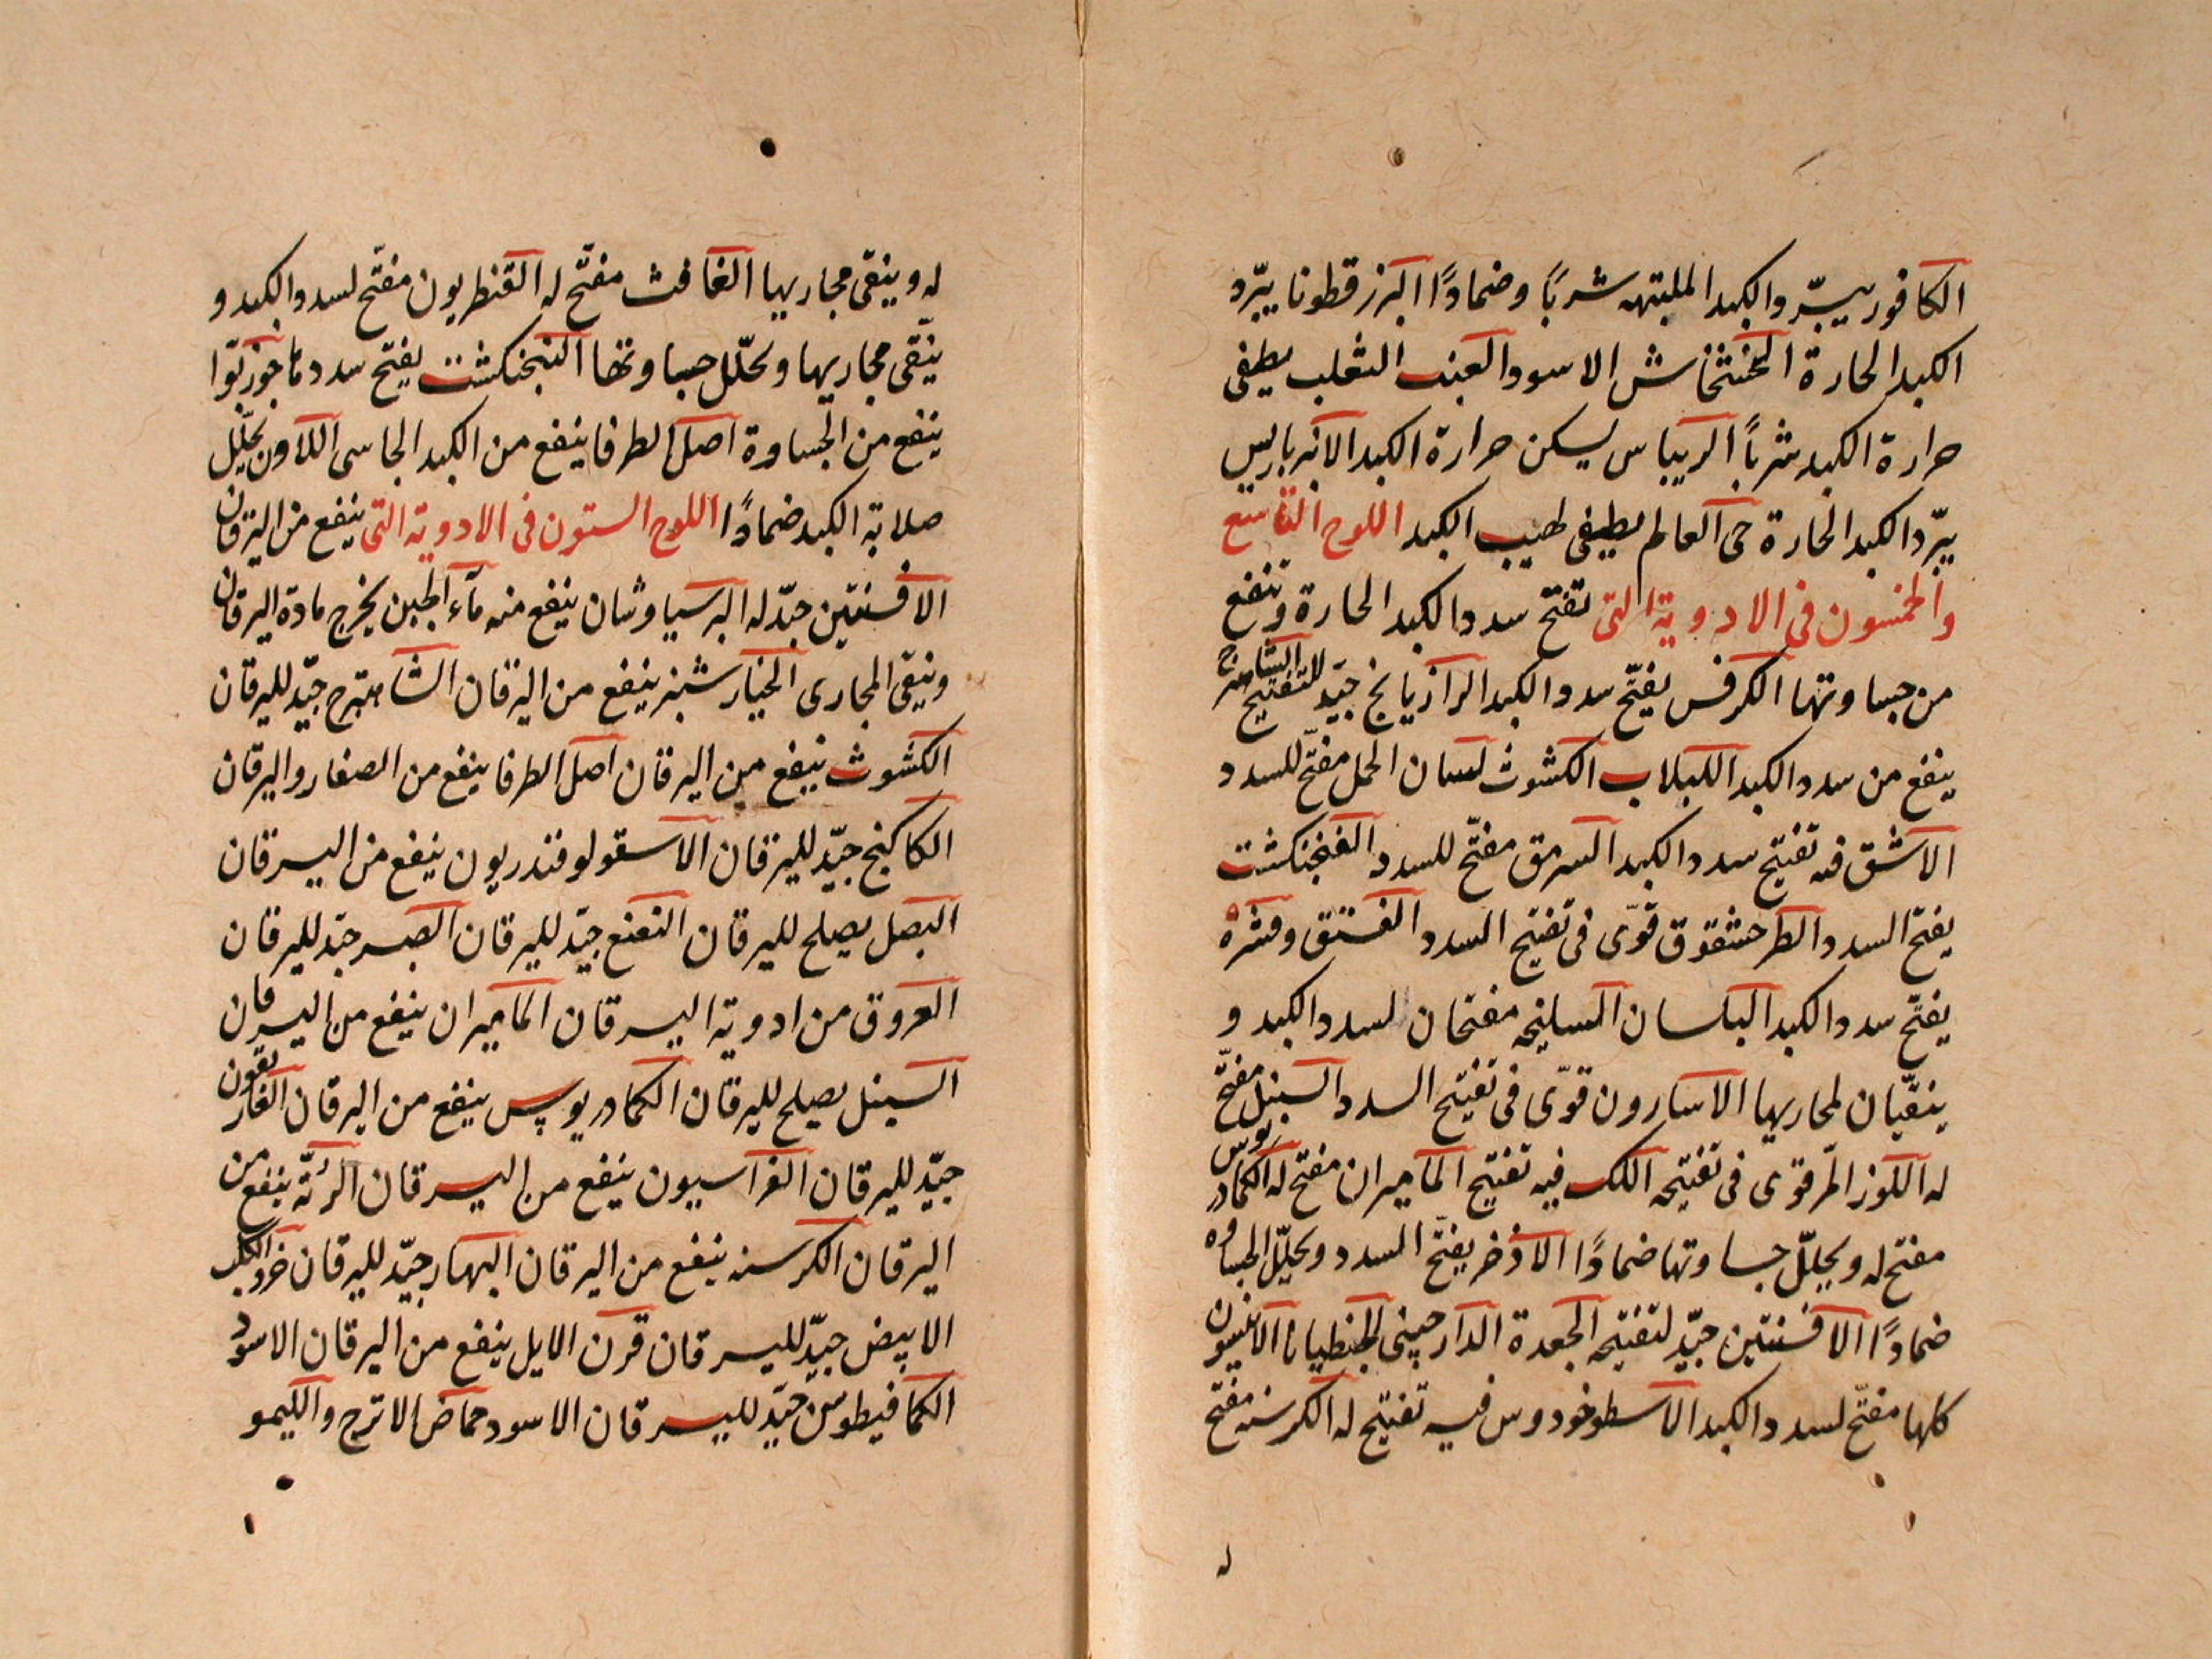 الكافور يبرّد الكبد الملتهبه شربًا وضمادًا البزرقطونا يبرّد
الكبد الحارة الخشخاش الاسود العنب الثعلب يطفى
حرارة الكبد شربًا الريباس يسكن حرارة الكبد الانبرباريس
يبرّد الكبد الحارة حى العالم يطفى لهيب الكبد اللوح التاسع
والخمسون فى الادوية التى تفتح سدد الكبد الحارة وتنفع
من جساوتها الكرفس يفتّح سدد الكبد الرازيانج جيّد للتفتيح الشاهترج
ينفع من سدد الكبد اللبلاب الكشوث لسان الحمل مفتّح للسدد
الاشق فيه تفتيح سدد الكبد السرمق مفتّح للسدد الفنجنكشت
يفتح السدد الطرحشقوق قوّى فى تفتيح السدد الفستق وقشره
يفتّح سدد الكبد البلسان السليخه مفتحان لسدد الكبد و
ينقّيان لمجاريها الاسارون قوّى فى تفتيح السدد السنبل مفتّح
له اللوز المرّ قوى فى تفتيحه اللك فيه تفتيح الماميران مفتح له الكمادريوس
مفتح له ويحلّل جساوتها ضمادًا الاذخر يفتّح السدد ويحلّل الجساوه
ضمادًا الافسنتين جيّد لتفتيحه الجعدة الدارچينى الجنطيانا الانيسون
كلها مفتّح لسدد الكبد الاسطوخودوس فيه تفتيح له الكرسنه مفتح
له
له وينقى مجاريها الغافث مفتّح له القنطريون مفتّح لسدد الكبد و
ينقّى مجاريها ويحلّل جساوتها البنجنكشت يفتح سددها جوزبوّا
ينفع من الجساوة اصل الطرفا ينفع من الكبد الجاسى اللاون يحلّل
صلابة الكبد ضمادًا اللوح الستون فى الادوية التى ينفع من اليرقان
الافسنتين جيّد له البرسياوشان ينفع منه مآء الجبن يخرج مادة اليرقان
وينقّى المجارى الخيارشنبر ينفع من اليرقان الشاهترج جيّد لليرقان
الكشوث ينفع من اليرقان اصل الطرفا ينفع من الصفار واليرقان
الكاكنج جيّد لليرقان الاسقولوفندريون ينفع من اليرقان
البصل يصلح لليرقان النعنع جيّد لليرقان الصبر جيّد لليرقان
العروق من ادوية اليرقان الماميران ينفع من اليرقان
السنبل يصلح لليرقان الكمادريوس ينفع من اليرقان الغاريقون
جيّد لليرقان الفراسيون ينفع من اليرقان الرتّه ينفع من
اليرقان الكرسنه ينفع من اليرقان البهار جيّد لليرقان خرو الكلب
الابيض جيّد لليرقان قرن الايل ينفع من اليرقان الاسود
الكمافيطوس جيّد لليرقان الاسود حماض الاترج والليمو